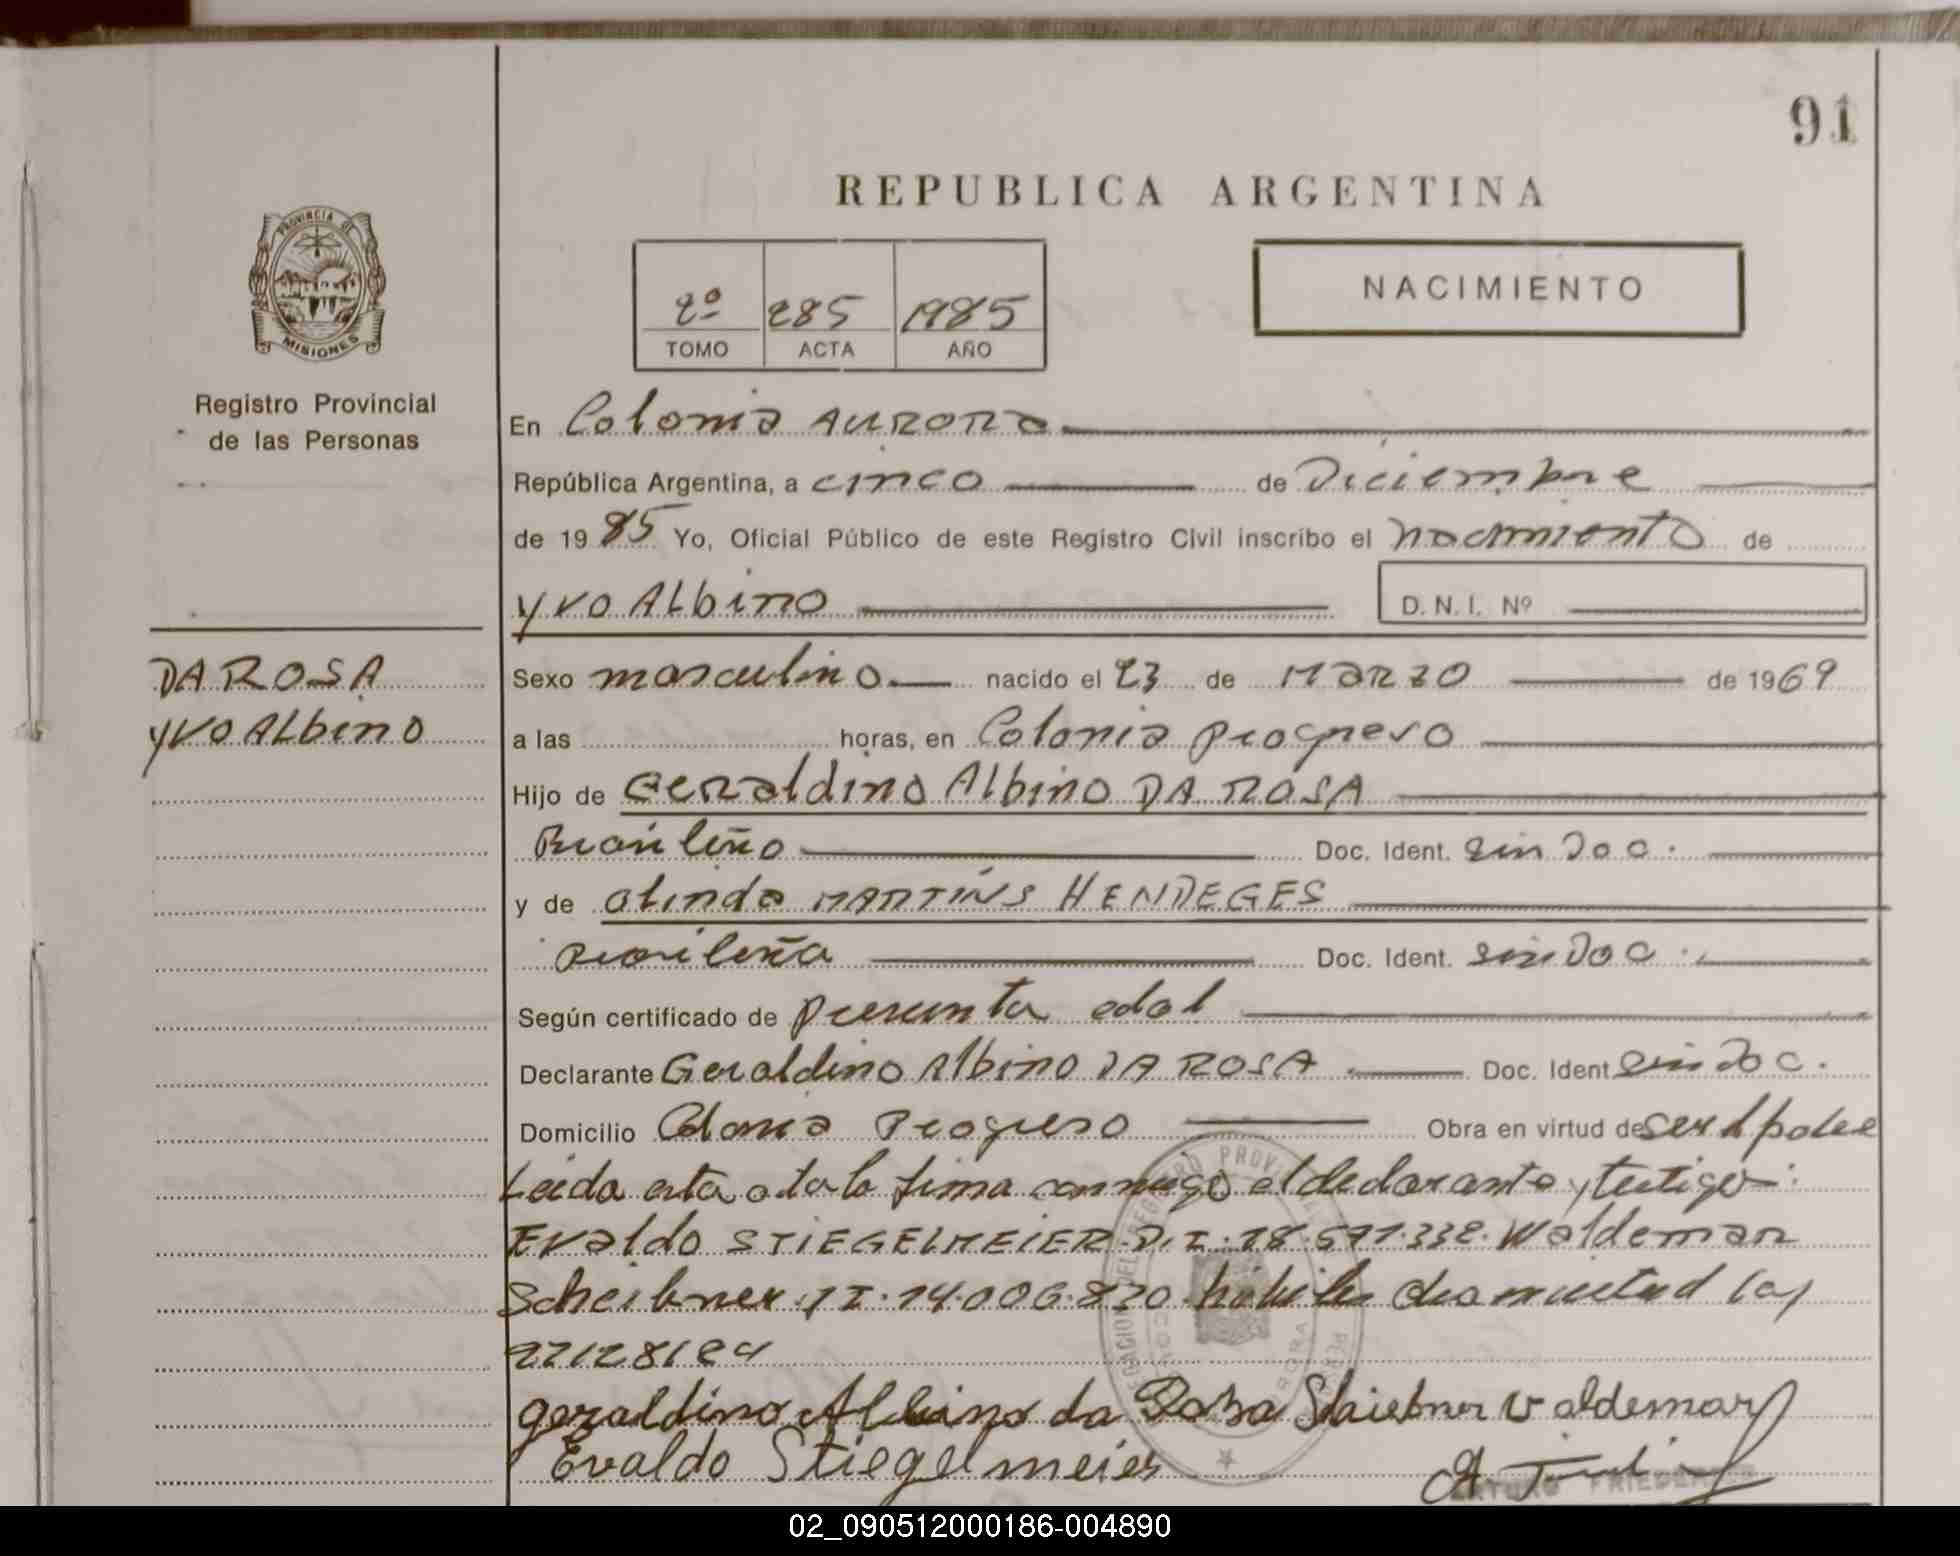 91
REPUBLICA ARGENTINA
PROVINCIA DE
MISIONES
2º 285 1985
TOMO ACTA AÑO
NACIMIENTO
Registro Provincial
de las Personas
En Colonia AURORA
República Argentina, a cinco de Diciembre
de 1985 Yo, Oficial Público de este Registro Civil inscribo el nacimiento de
yvo Albino D.N.I. Nº
DA ROSA
yvo Albino
Sexo masculino nacido el 23 de MARZO de 1969
a las horas, en Colonia progreso
Hijo de Geraldino Albino DA ROSA
Brasileño Doc. Ident. sin Doc.
y de olinda MARTINS HENDEGES
Brasileña Doc. Ident. sin Doc.
Según certificado de presunta edad
Declarante Geraldino Albino DA ROSA Doc. Ident sin Doc.
Domicilio Colonia Progreso Obra en virtud de ser el padre
Leida esta acta la firma conmigo el declarante y testigos:
Evaldo STIEGELMEIER D.I. 18.571.332. Waldemar
Scheibner .I. 14.006.820 hábiles de amistad ley
22128/84
geraldino Albino da Roza Shiebner Valdemar
Evaldo Stiegelmeier
ARTURO FRIEDER
02_090512000186-004890